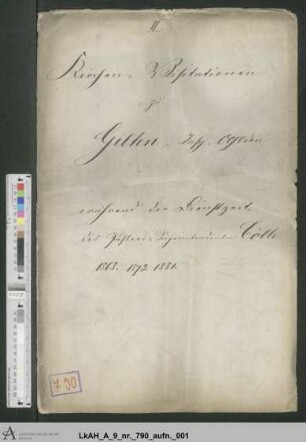 II
Kirchen-Visitationen
zu
Gilten, Insp. Ahlden
während der Dienstzeit
des Pastors u. Superintendenten Cölle
1868. 1872. 1881.
790
LkAH_A_9_nr._790_aufn._001